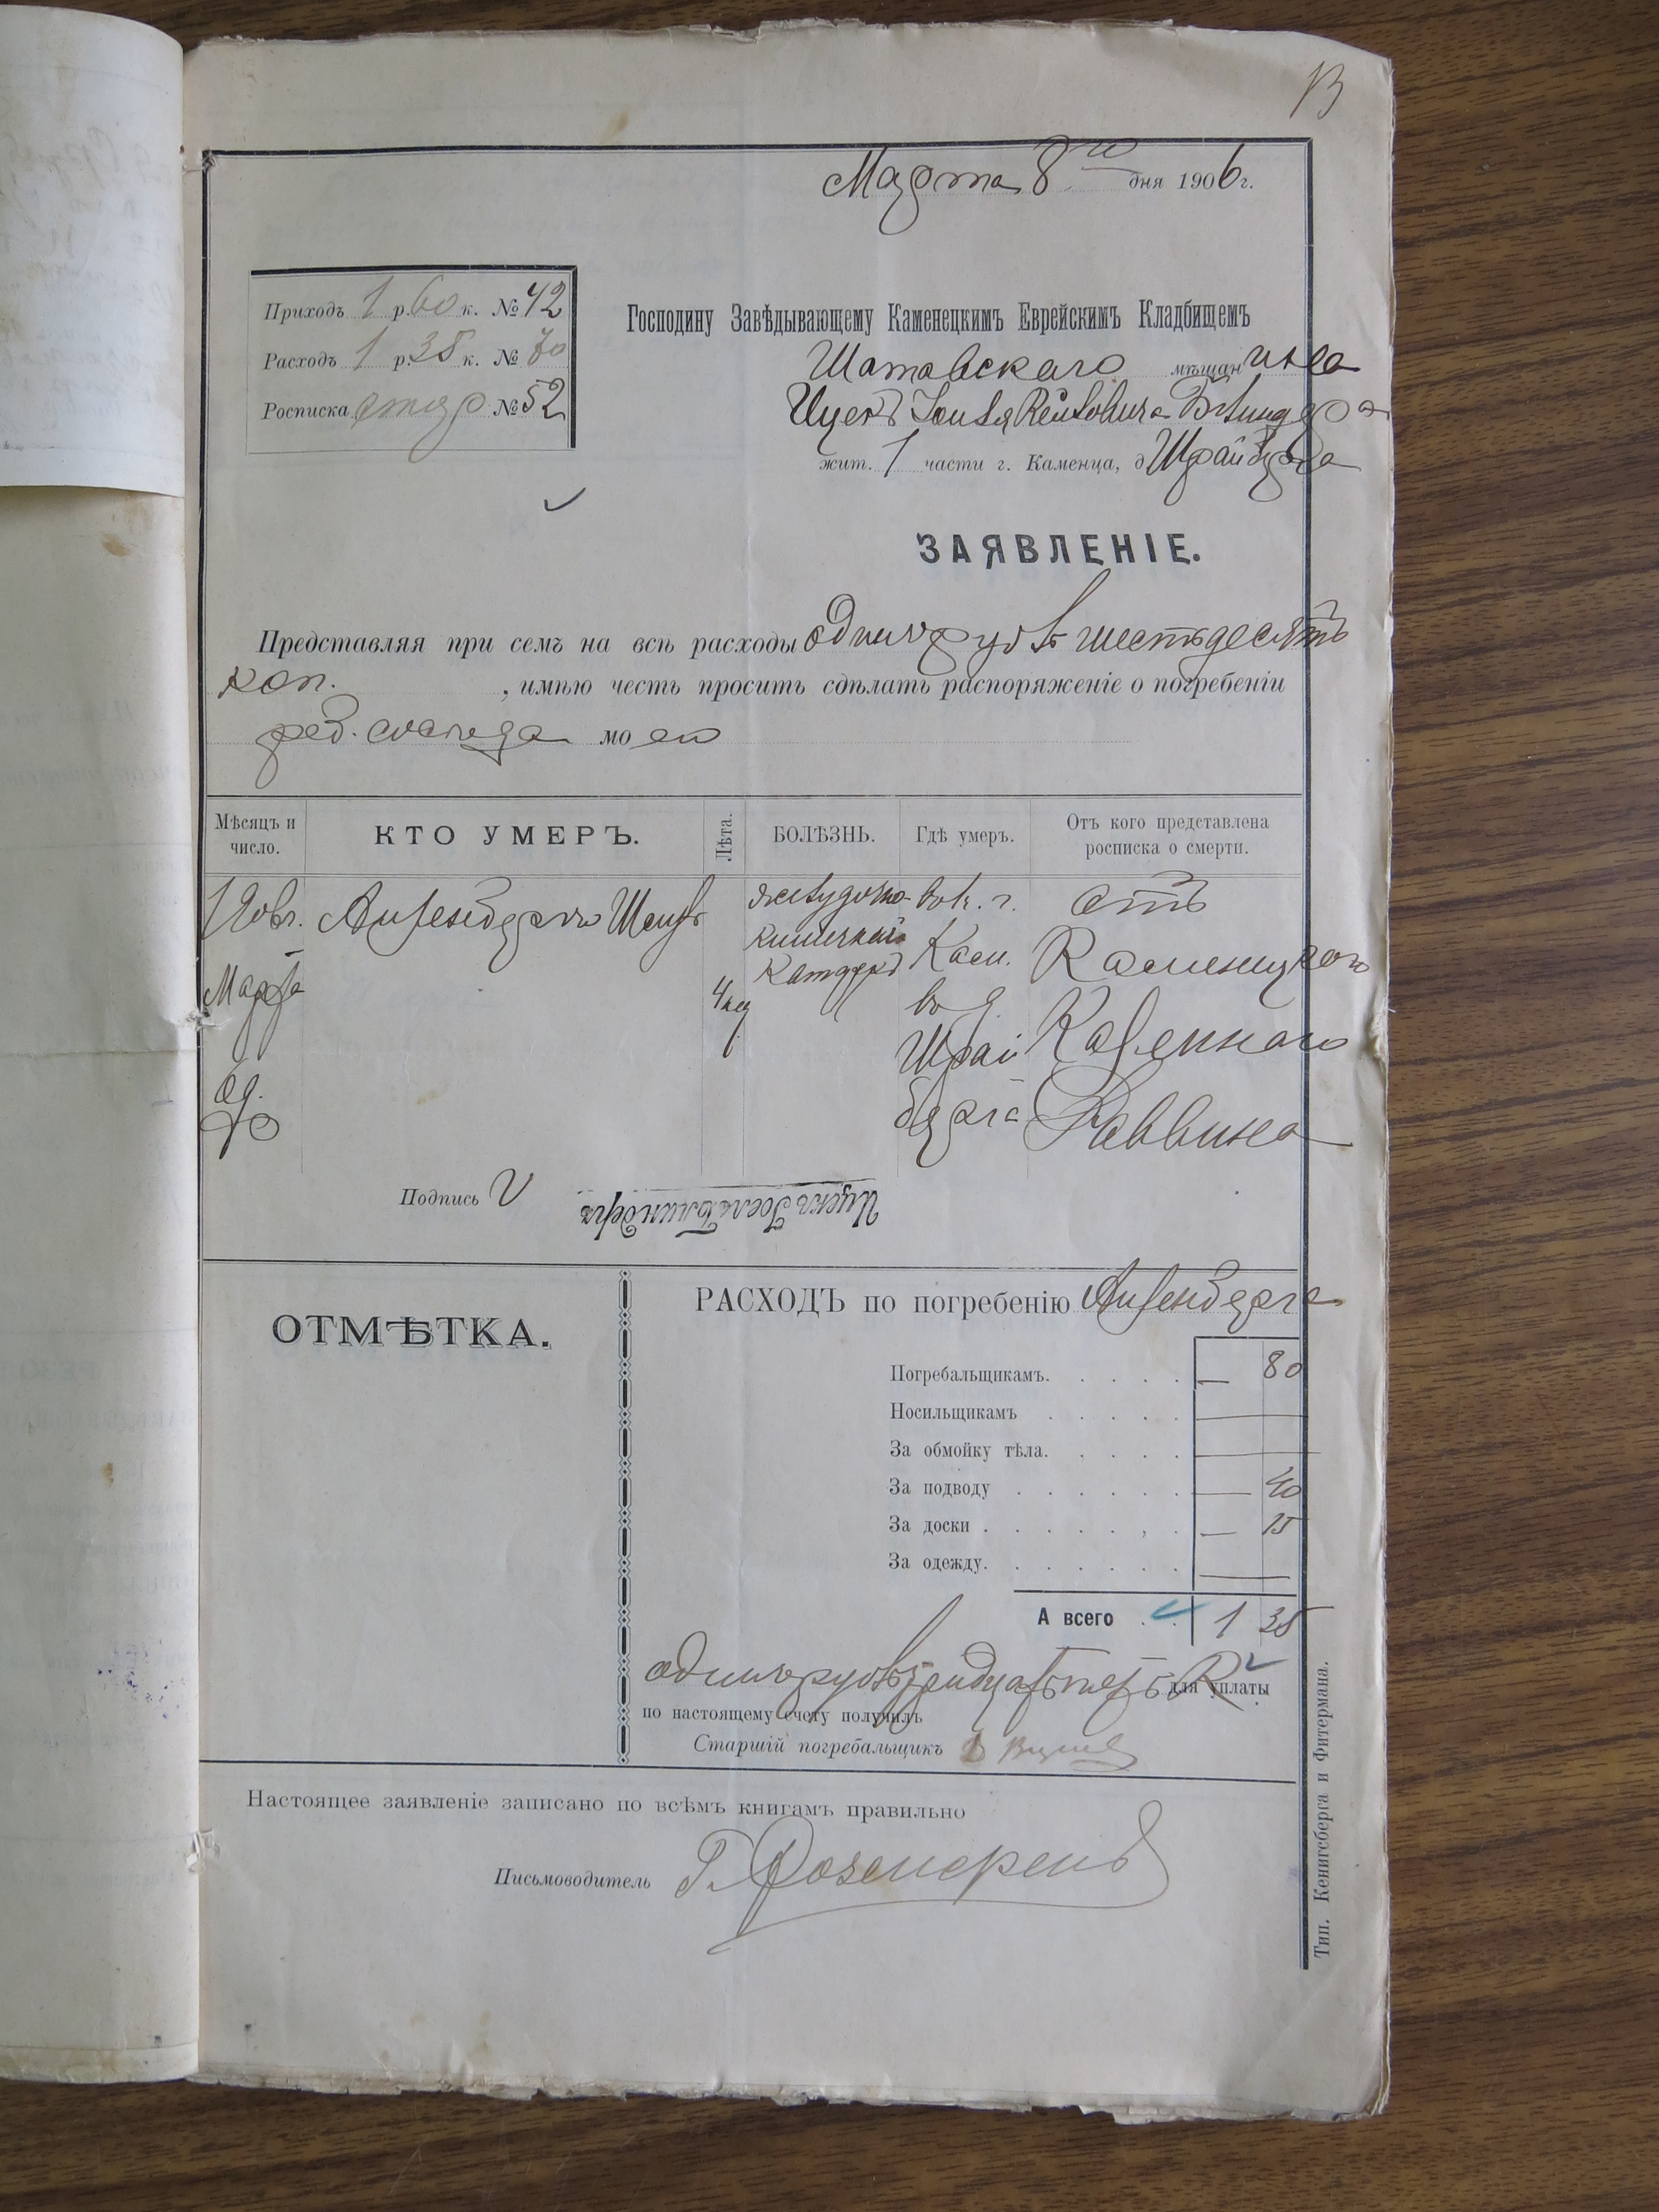 13
Марта 8го дня 1906 г.
Приходъ 1 р. 60 к. № 42
Расходъ 1 р. 35 к. № 70
Росписка № 52
Господину Завѣдывающему Каменецкимъ Еврейскимъ Кладбищемъ
Шатавскаго мѣщанина
Ицекъ Блиндера
жит. 1 части г. Каменца, д Шрайберга
ЗАЯВЛЕНІЕ.
Представляя при семъ на всѣ расходы одинъ рубль шестьдесятъ
коп. , имѣю честь просить сдѣлать распоряженіе о погребеніи
реб. сосѣда моего
Мѣсяцъ и число.
КТО УМЕРЪ.
Лѣта.
БОЛѢЗНЬ.
Гдѣ умеръ.
Отъ кого представлена росписка о смерти.
Марта
Айзенбергъ
4 нед
желудочно-
кишечный
катарръ
въ г.
Кам.
въ д.
Шрай
берга
отъ
Каменецкаго
Казеннаго
Раввина
Подпись Ицекъ Іосель Блиндеръ
ОТМѢТКА.
РАСХОДЪ по погребенію Айзенберга
Погребальщикамъ. — 80
Носильщикамъ —
За обмойку тѣла. —
За подводу — 40
За доски — 15
За одежду. —
А всего 1 35
одинъ рубль тридцать пять к для уплаты
по настоящему счету получилъ
Старшій погребальщикъ
Настоящее заявленіе записано по всѣмъ книгамъ правильно
Письмоводитель Г. Розенкренъ
Тип. Кенигсберга и Фитермана.